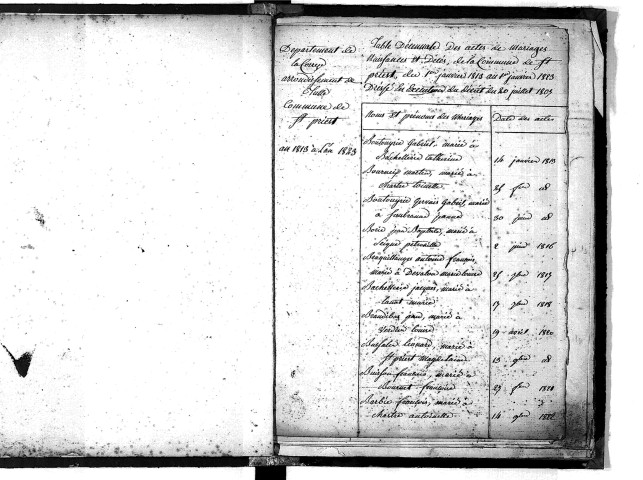 Département de
la Correze
arrondissement de
Tulle
Commune de
st priest
au 1813 à l'an 1823
Table Décennale Des actes de Mariages
Naissances et Décès, de la Commune de st
priest, du 1er janvier 1813 au 1er janvier 1823
Dressé en exécution du décret du 20 juillet 1807
Noms et prénoms des Mariages
Date des actes
Boutouyrie Gabriel, marié à
Bachellerie Catherine 14 janvier 1813
martin, marié à
Chartre toinette 25 d
Boutouyrie Gervais Gabriel, marié
à jeanne 30 juin d
Borie jean Baptiste, marié à
petronille 2 juin 1816
antoine françois,
marié à marie louise 25 1817
Bachellerie jacques, marié à
marie 17 7bre 1818
jean, marié à
louise 19 avril 1820
Leonard, marié à
st priest Magdelaine 13 9bre d
françois, marié à
françoise 27 1821
Barbie françois, marié à
Chartre antoinette 14 9bre 1822